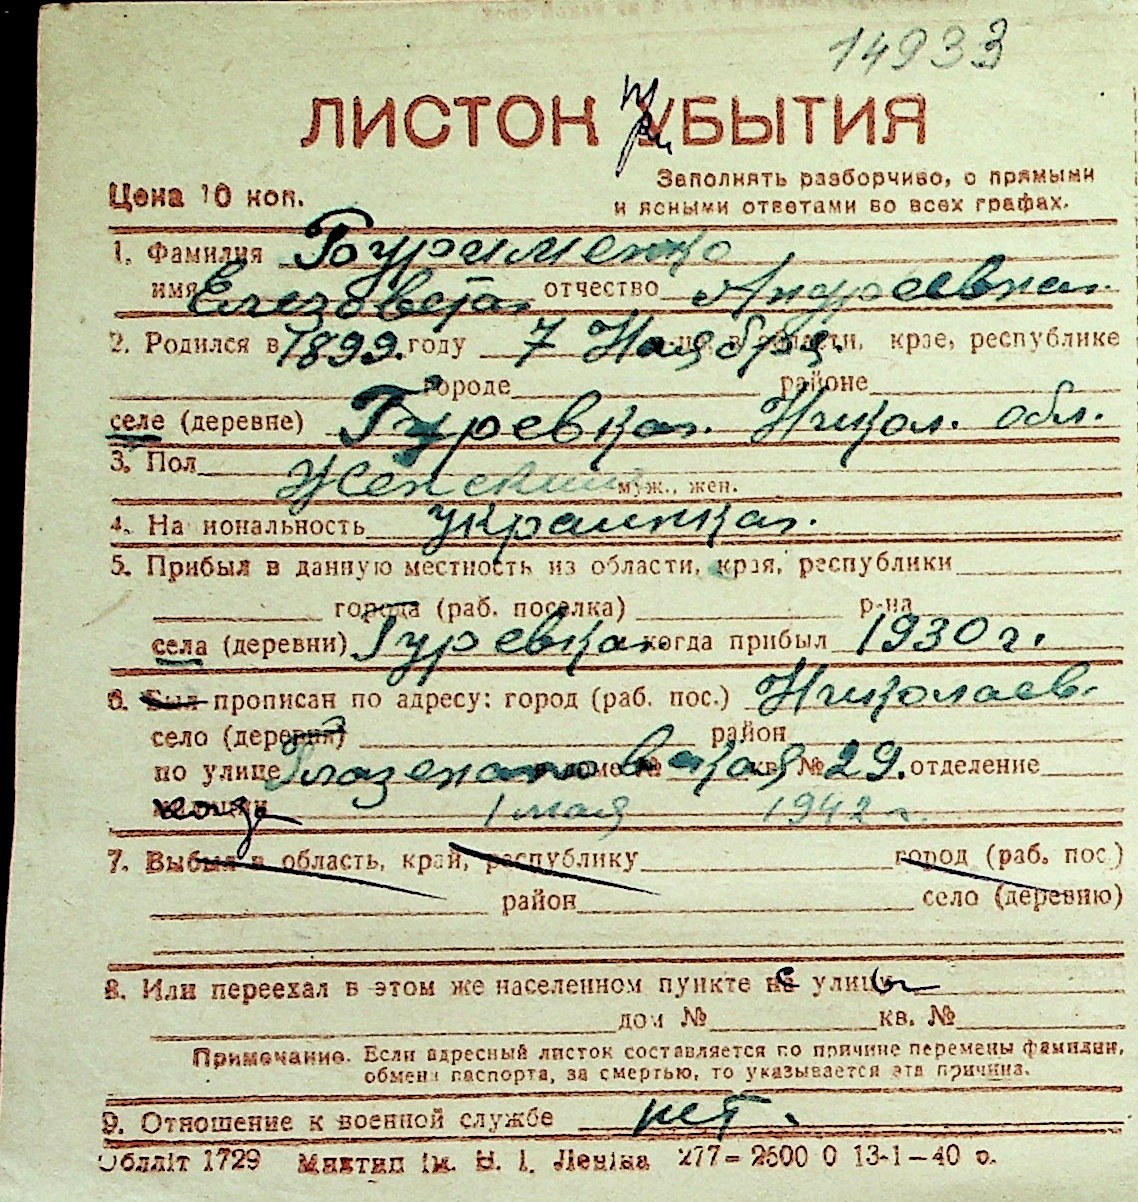 14933
ЛИСТОК При УБЫТИЯ
Цена 10 коп.
Заполнять разборчиво, с прямыми
и ясными ответами во всех графах.
1. Фамилия Буримемко
имя Елезовета отчество Андреевна
2. Родился в 1899. году 7 Наября. области, крае, республике
городе районе
селе (деревне) Гуревка. Никол. обл.
3. Пол Женский муж., жен.
4. На иональность украинка.
5. Прибыл в данную местность из области, края, республики
города (раб. поселка) р-на
села (деревни) Гуревка. когда прибыл 1930 г.
6. Был прописан по адресу: город (раб. пос.) Николаев.
село (деревня) район
по улице кв. № 29. отделение
когда 1 мая 1942 г.
7. Выбыл в область, край, республику город (раб. пос.)
район село (деревню)
8. Или переехал в этом же населенном пункте с улицы
дом № кв. №
Примечание. Если адресный листок составляется по причине перемены фамилии,
обмена паспорта, за смертью, то указывается эта причина.
9. Отношение к военной службе нет.
Облліт 1729 Миктип ім. В. І. Леніна 277—2500 0 13-1—40 р.